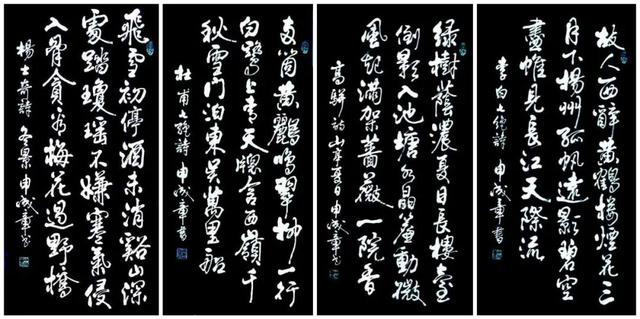 故人西辭黄鶴樓煙花三
月下揚州孤帆遠影碧空
盡惟見長江天際流
李白七绝詩 申成章書
绿樹蔭濃夏日長樓臺
倒影入池塘水晶簾動微
風起滿架薔薇一院香
高駢詩山亭夏日 申成章書
两箇黄鸝鳴翠柳一行
白鹭上青天窗含西嶺千
秋雪門泊東吴萬里船
杜甫七绝詩 申成章書
飛雪初停酒未消谿山深
處踏瓊瑶不嫌寒氣侵
入骨貪看梅花過野橋
楊士奇詩 冬景 申成章書